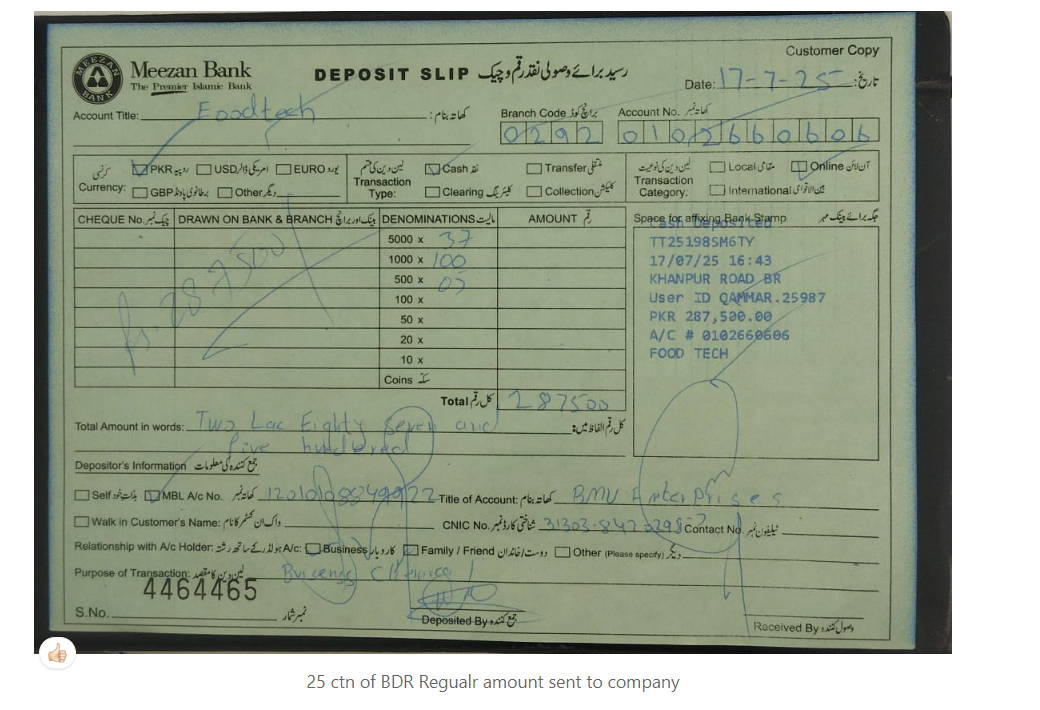 Customer Copy
MEEZAN BANK
Meezan Bank
The Premier Islamic Bank
DEPOSIT SLIP رسید برائے وصولی نقد رقم و چیک
Date: 17-7-25 تاریخ:
Account Title: Foodtech کھاتہ بنام:
Branch Code برانچ کوڈ Account No. کھاتہ نمبر
0292 0102660606
کرنسی Currency: PKR روپیہ USD/امریکی ڈالر EURO یورو
GBP برطانوی پاؤنڈ Other دیگر
لین دین کی قسم Transaction Type: Cash نقد Transfer منتقلی
Clearing کلیئرنگ Collection کلیکشن
لین دین کی نوعیت Transaction Category: Local مقامی Online آن لائن
International بین الاقوامی
CHEQUE No. چیک نمبر DRAWN ON BANK & BRANCH بینک اور برانچ DENOMINATIONS مالیت AMOUNT رقم
Space for affixing Bank Stamp جگہ برائے بینک مہر
Cash Deposited
TT25198SM6TY
17/07/25 16:43
KHANPUR ROAD BR
User ID QAMMAR.25987
PKR 287,500.00
A/C # 0102660606
FOOD TECH
5000 x 37
1000 x 100
500 x 05
100 x
50 x
20 x
10 x
Coins سکے
Rs. 287500
Total کل رقم 287500
Total Amount in words: Two Lac Eighty Seven and کل رقم الفاظ میں:
five hundered
Depositor's Information جمع کنندہ کی معلومات
Self بذات خود MBL A/c No. کھاتہ نمبر Title of Account: کھاتہ بنام: BMV Enterprises
Walk in Customer's Name: واک ان کسٹمر کا نام CNIC No. شناختی کارڈ نمبر Contact No. ٹیلیفون نمبر
Relationship with A/c Holder: اکاؤنٹ ہولڈر کے ساتھ رشتہ A/c: Business کاروبار Family / Friend دوست/خاندان Other (Please specify) دیگر
Purpose of Transaction: لین دین کا مقصد
4464465
S.No. نمبر شمار
Deposited By جمع کنندہ
Received By وصول کنندہ
25 ctn of BDR Regualr amount sent to company